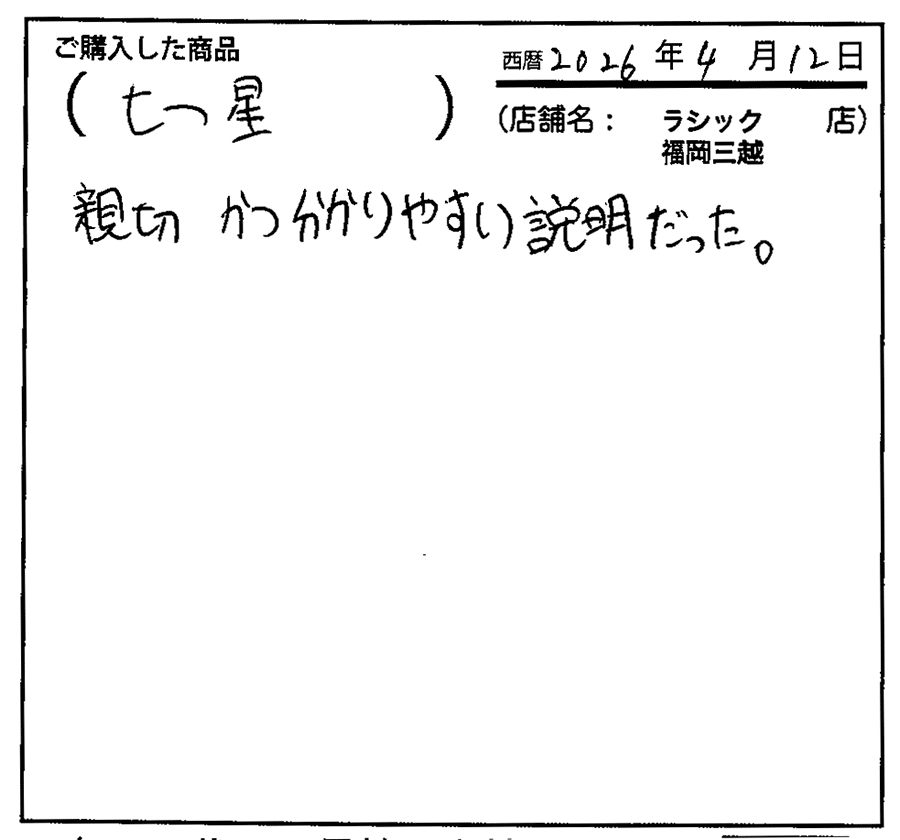 ご購入した商品
西暦2026年4月12日
(七つ星)
(店舗名: ラシック福岡三越 店)
親切かつ分かりやすい説明だった。